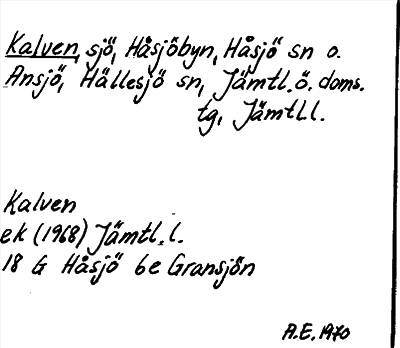 Kalven, sjö, Håsjöbyn, Håsjö sn o.
Ansjö, Hällesjö sn, Jämtl. ö. doms.
tg, Jämtl l.
Kalven
ek (1968) Jämtl. l.
18 G Håsjö 6e Gransjön
A.E. 1970